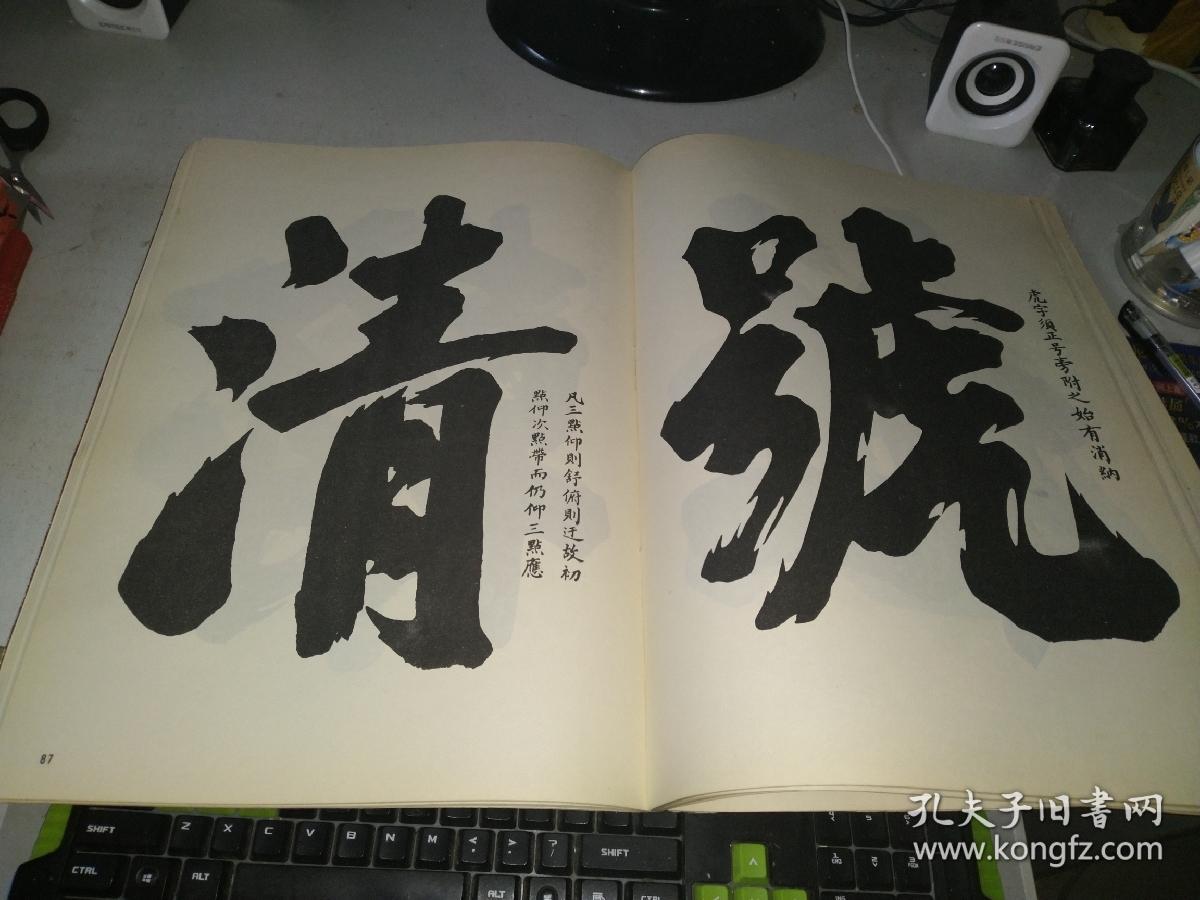 號
虎字須正号旁附之始有消納
清
凡三點仰則舒俯則迂故初
點仰次點帶而仍仰三點應
87
孔夫子旧書网
www.kongfz.com
SHIFT Z X C V B N M SHIFT
CTRL ALT ALT CTRL